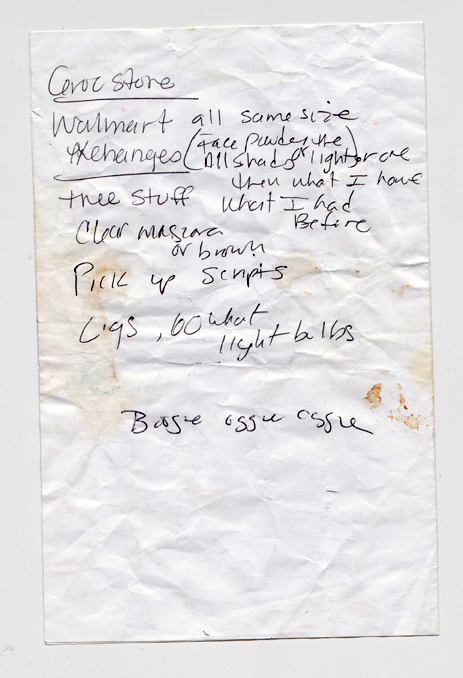 Groc store
Walmart all same size
Exchanges (Face powder the
All shads lightor one)
then what I have
thee stuff what I had
Before
Clear mascara
or brown
Pick up scripts
Cigs, 60 what
light bulbs
Boogie oggie oggie